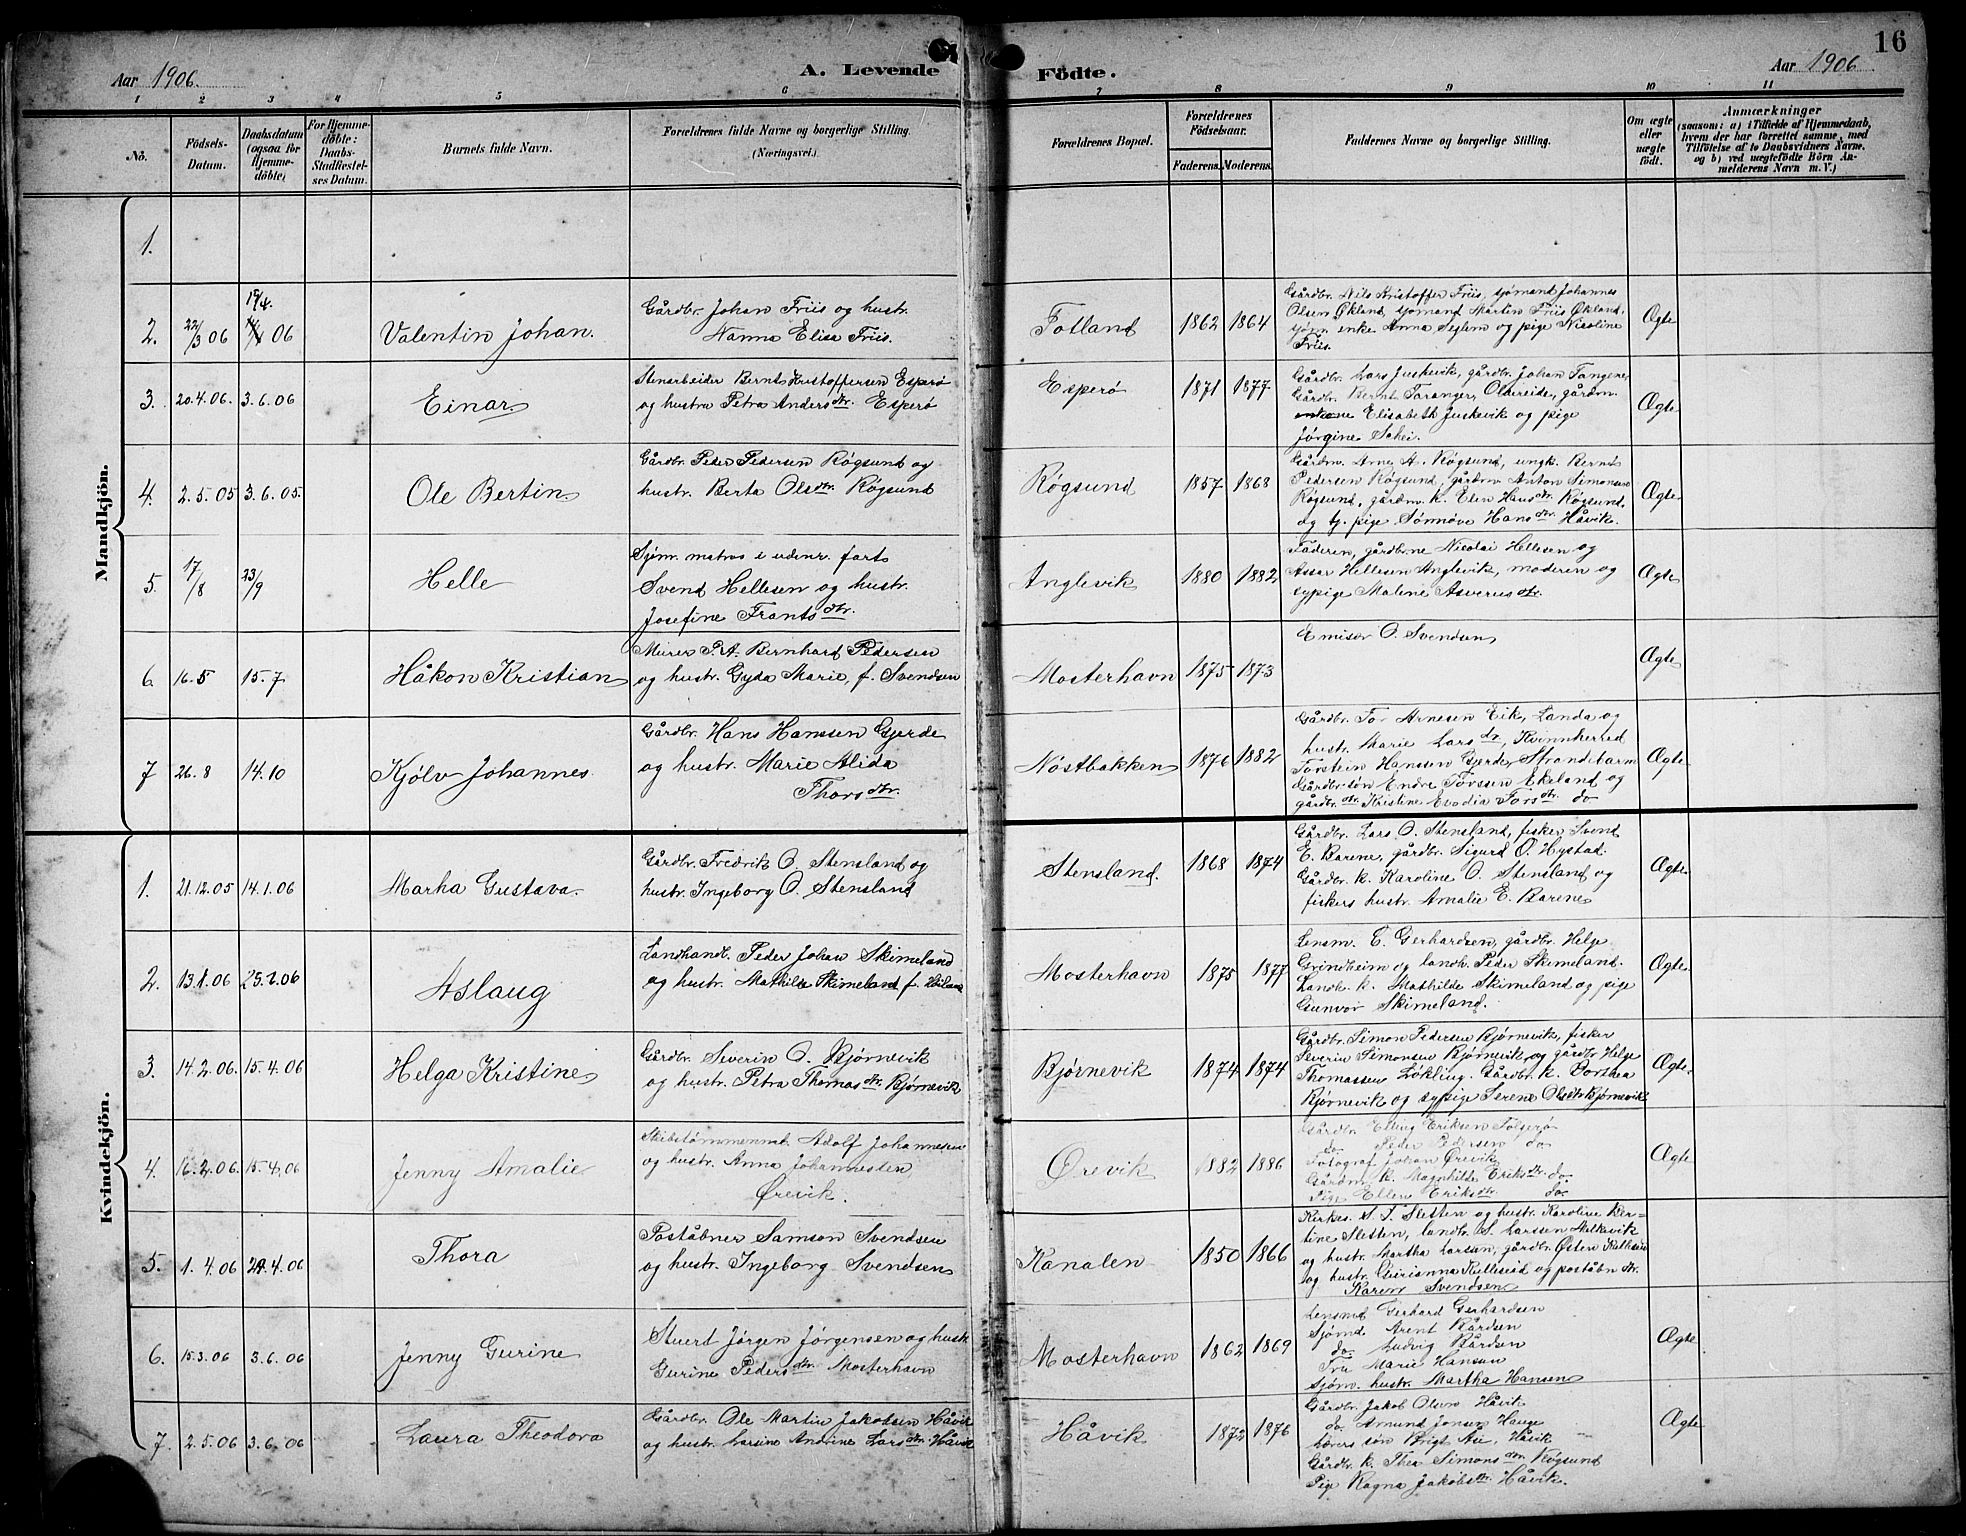 16
Aar 1906.
A. Levende
Födte.
Aar 1906
1 2 3 4 5 6 7 8 9 10 11
No.
Födsels-
Datum.
Daabsdatum
(ogsaa for
Hjemme-
döbte)
For Hjemme-
döbte:
Daabs-
Stadfæstel-
ses Datum.
Barnets fulde Navn.
Forældrenes fulde Navne og borgerlige Stilling.
(Næringsvei.)
Forældrenes Bopæl.
Forældrenes
Födselsaar.
Faderens. Moderens.
Faddernes Navne og borgerlige Stilling.
Om ægte
eller
uægte
födt.
Anmærkninger
(saasom: a) i Tilfælde af Hjemmedaab,
hvem der har forrettet samme, med
Tilföielse af to Daabsvidners Navne.
og b) ved uægtefödte Börn An-
melderens Navn m. V.)
Mandkjön.
1.
2. 22/3 06 15/4. 06
Valentin Johan.
Gårdbr. Johan Friis og hustr.
Nanna Elisa Friis.
Fotland 1862 1864
Gårdbr. Nils Kristoffer Friis, sjømand Johannes
Olsen Økland, sjømand Martin Friis Økland,
sjøm. enke Anna Seglem og pige Nicoline
Friis.
Ægte
3. 20.4.06. 3.6.06
Einar.
Stenarbeider Bernt Kristoffersen Esperø
og hustru Petra Andersdtr. Esperø
Esperø 1871 1877
Gårdbr. Lars Juskevik, gårdbr. Johan Tangene,
Gårdbr. Bernt Taranger, Olareide, gårdm.
Elisabeth Juskevik og pige
Jørgine Schei.
Ægte
4. 2.5.05 3.6.05.
Ole Bertin
Gårdbr. Peder Pedersen Røgsund og
hustr. Berta Olsdtr. Røgsund
Røgsund 1857 1868
Gårdm. Arne A. Røgsund, ungk. Bernt
Pedersen Røgsund, gårdm. Anton Simonsen
Røgsund, gårdm. k. Elen Hansdtr. Røgsund,
og tj. pige Sønnøve Hansdtr. Håvik.
Ægte
5. 17/8 23/9
Helle
Sjøm. matros i udenr. fart
Svend Hellesen og hustr.
Josefine Frantsdtr.
Anglevik 1880 1882
Faderen, gårdbrne Nicolai Hellesen og
Assar Hellesen Anglevik, moderen og
sypige Malene Asverusdtr.
Ægte
6. 16.5 15.7
Håkon Kristian
Murer P.A. Bernhard Pedersen
og hustr. Gyda Marie, f. Svendsen
Mosterhavn 1875 1873
Emisær O. Svendsen
Ægte
7 26.8 14.10
Kjølv Johannes.
Gårdbr. Hans Hanssen Gjerde
og hustr. Marie Alida
Thorsdtr.
Nøstbakken 1876 1882
Gårdbr. Tor Arnesen Eik, Landa og
hustr. Marie Larsdtr, Kvinnherred
Torstein Hansen Gjerde, Strandebarm
Gårdbr. søn Endre Torssen Ekeland og
gårdbr. dtr. Kristine Evodia Torsdtr. do
Ægte
Kvindekjön.
1. 21.12.05 14.1.06
Marha Gustava.
Gårdbr. Fredrik O. Stensland og
hustr. Ingeborg O. Stensland
Stensland. 1868 1874
Gårdbr. Lars O. Stensland, fisker Svend
E. Barene, gårdbr. Sigurd O. Hystad.
Gårdbr. k. Karoline O. Stensland og
fiskers hustr. Amalie E. Barene
Ægte.
2. 13.1.06 25.2.06
Aslaug
Landhandl. Peder Johan Skimeland
og hustr. Mathilde Skimeland f.
Mosterhavn 1875 1877
Lensm. E. Gerhardsen, gårdbr. Helge
Grindheim og landh. Peder Skimeland.
Landh. k. Mathilde Skimeland og pige
Gunvor Skimeland.
Ægte.
3. 14.2.06. 15.4.06
Helga Kristine
Gårdbr. Severin O. Bjørnevik
og hustr. Petra Thomasdtr. Bjørnevik
Bjørnevik 1874 1874
Gårdbr. Simon Pedersen Bjørnevik, fisker
Severin Simonsen Bjørnevik og gårdbr. Helge
Thomassen Løkling. Gårdbr. k. Dorthea
Bjørnevik og sypige Serene Olsdtr Bjørnevik
Ægte.
4. 16.2.06. 15.4.06
Jenny Amalie
Skibstømmermd. Adolf Johannesen
og hustr. Anna Johannesen,
Ørevik.
Ørevik 1882 1886
Gårdbr. Elling Eriksen Folgerø
do. Peder Pedersen do
Fotograf Johan Ørevik
Gårdm k. Magnhilde Eriksdtr. do.
Pige Ellen Eriksdtr. do.
Ægte
5. 1.4.06 29.4.06
Thora
Poståbner Samson Svendsen
og hustr. Ingeborg Svendsen
Kanalen 1850 1866
Kirkes. S. T. Sletten og hustr. Karoline Ker-
tine Sletten, landh. S. Larssen Mælkevik
og hustr. Martha Larsen, gårdbr. Østen Kulleseid
og hustr. Gurianna Kulleseid og poståbn dtr.
Karen Svendsen
6. 15.3.06 3.6.06
Jenny Gurine
Stuert Jørgen Jørgensen og hustr.
Gurine Pedersdtr. Mosterhavn
Mosterhavn 1862 1869
Lensmd Gerhard Gerhardsen
Sjømd Arent Bårdsen
do. Ludvig Bårdsen
Fru Marie Hansen
sjøm. hustr. Martha Hansen
Ægte
7. 2.5.06 3.6.06
Laura Theodora
Gårdbr. Ole Martin Jakobsen Håvik
og hustr. Larsine Andrine Larsdtr. Håvik
Håvik 1872 1876
Gårdbr. Jakob Olsen Håvik
do. Amund Jonsen Hauge
Lærers søn Brigt Ase, Håvik
Gårdbr. k. Thea Simonsdtr. Røgsund
Pige Ragna Jakobsdtr. Håvik.
Ægte